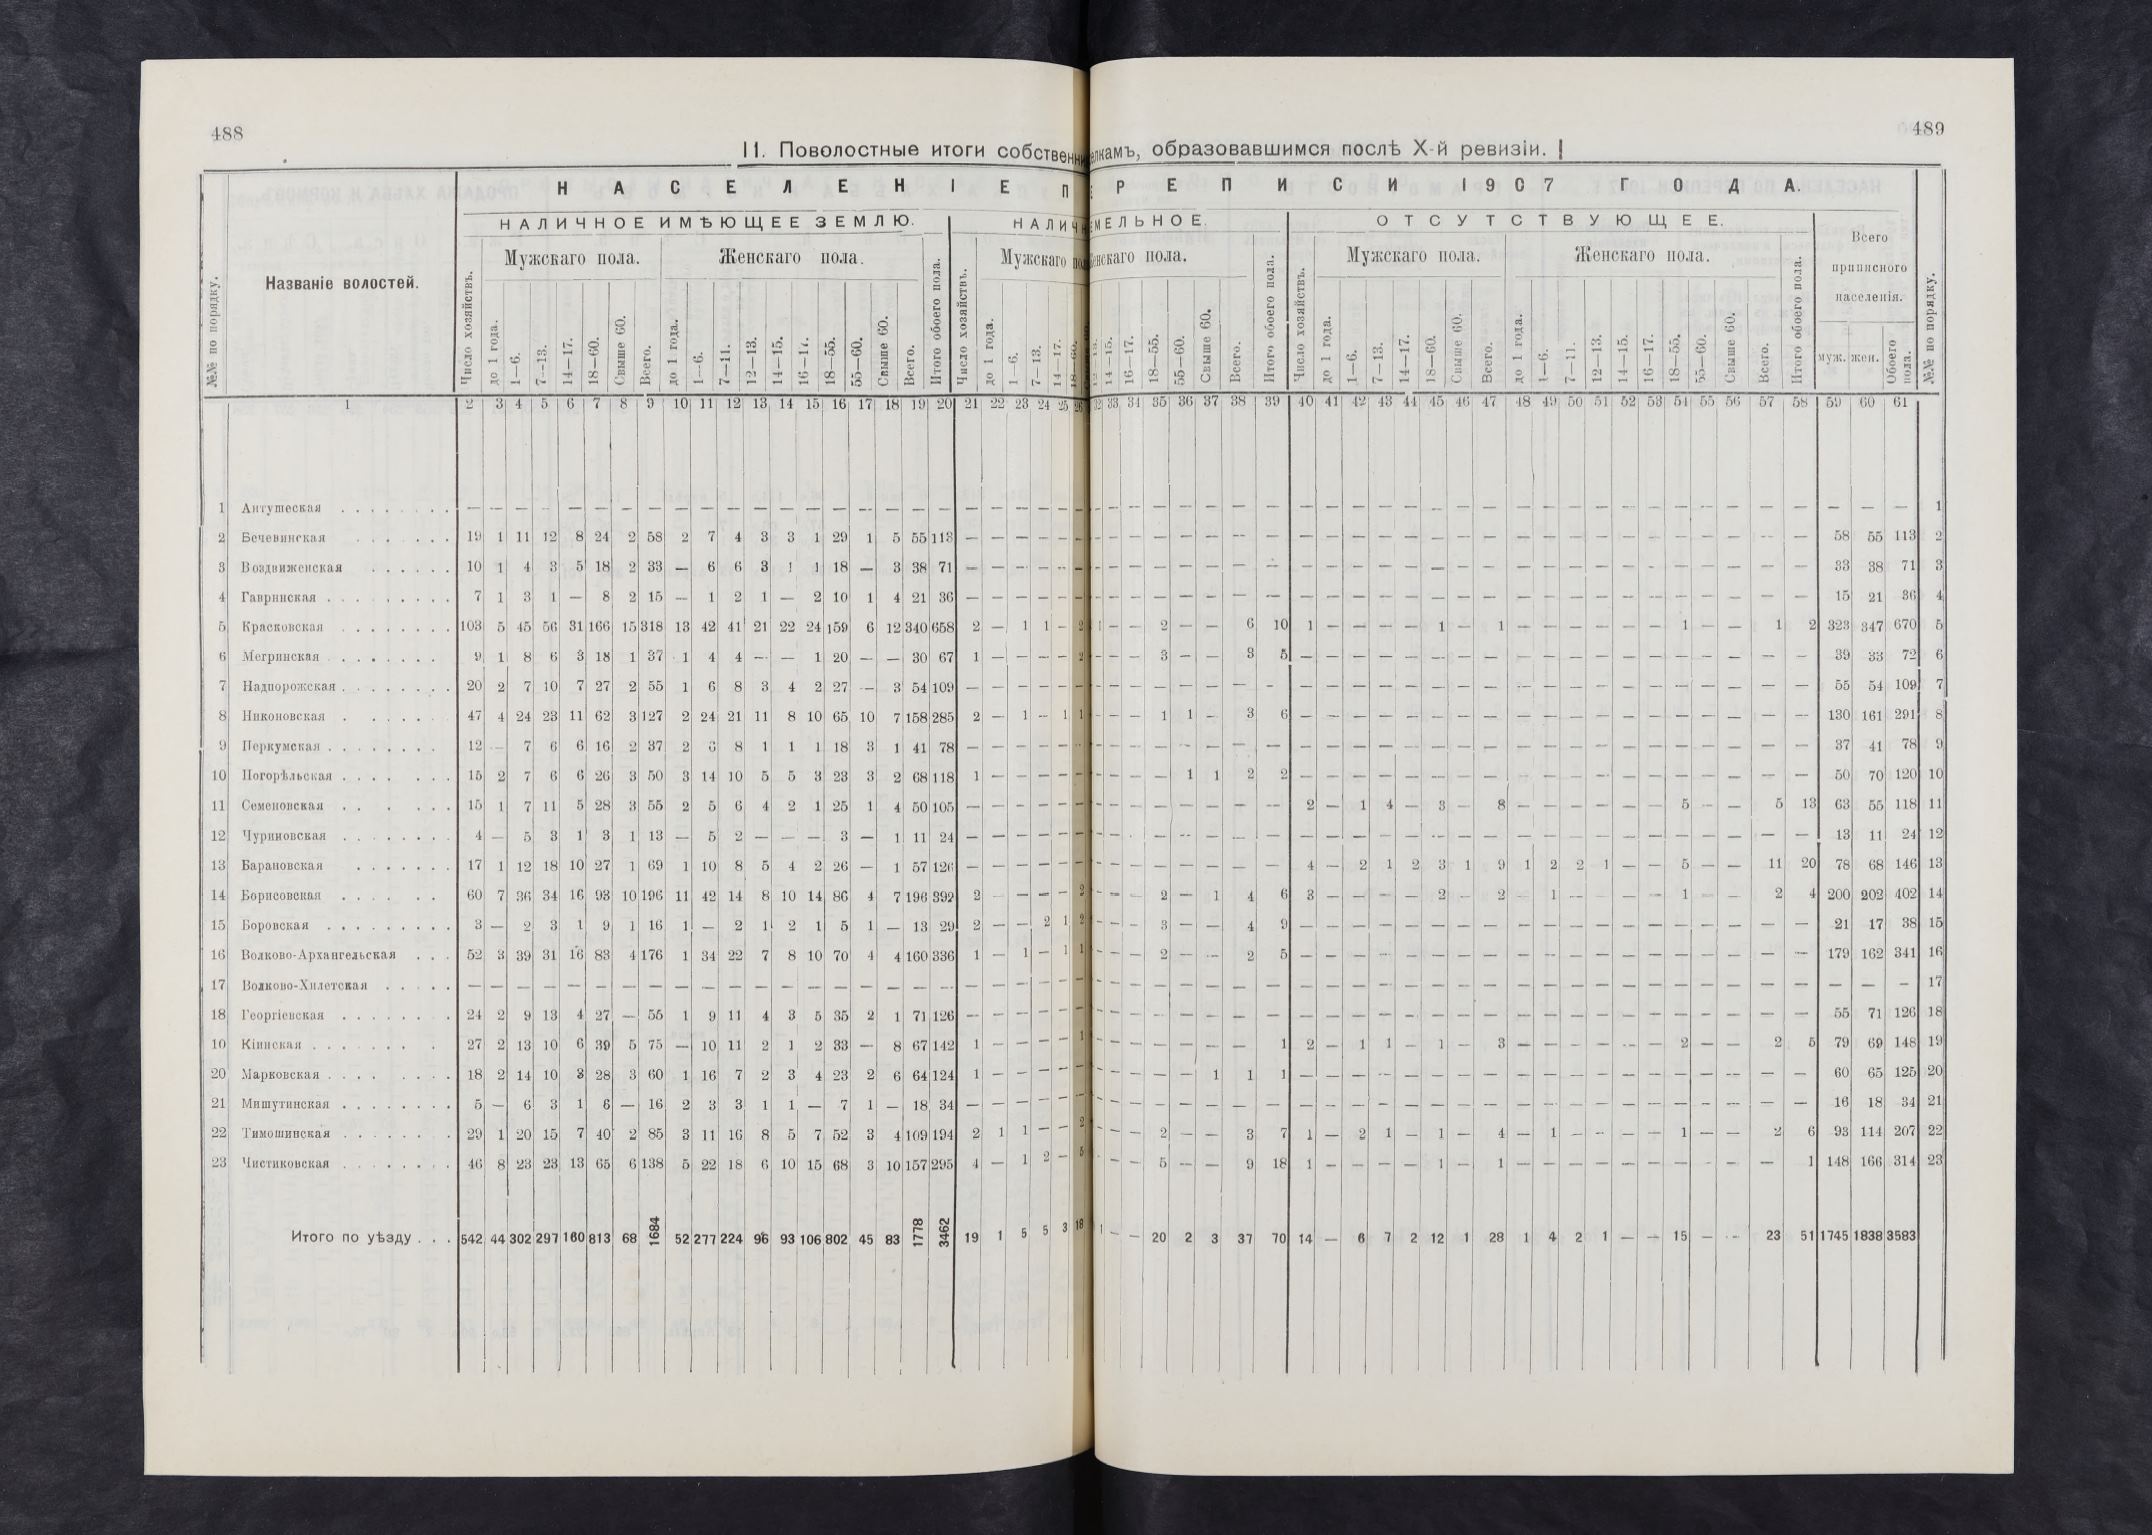 488
489
II. Поволостные итоги собственн
елкамъ, образовавшимся послѣ X-й ревизіи.
НАСЕЛЕНІЕ П
РЕПИСИ 1907 ГОДА.
НАЛИЧНОЕ ИМѢЮЩЕЕ ЗЕМЛЮ.
НАЛИЧ
ЕМЕЛЬНОЕ.
ОТСУТСТВУЮЩЕЕ.
Всего приписного населенія.
№№ по порядку.
Названіе волостей.
Число хозяйствъ.
Мужскаго пола.
Женскаго пола.
Итого обоего пола.
Число хозяйствъ.
Мужскаго по
енскаго пола.
Итого обоего пола.
Число хозяйствъ.
Мужскаго пола.
Женскаго пола.
Итого обоего пола.
№№ по порядку.
до 1 года. 1—6. 7—13. 14—17. 18—60. Свыше 60. Всего.
до 1 года. 1—6. 7—11. 12—13. 14—15. 16—17. 18—55. 55—60. Свыше 60. Всего.
до 1 года. 1—6. 7—13. 14—17. 18—60.
14—15. 16—17. 18—55. 55—60. Свыше 60. Всего.
до 1 года. 1—6. 7—13. 14—17. 18—60. Свыше 60. Всего.
до 1 года. 1—6. 7—11. 12—13. 14—15. 16—17. 18—55. 55—60. Свыше 60. Всего.
муж. жен. Обоего пола.
1 2 3 4 5 6 7 8 9 10 11 12 13 14 15 16 17 18 19 20 21 22 23 24 25 26 32 33 34 35 36 37 38 39 40 41 42 43 44 45 46 47 48 49 50 51 52 53 54 55 56 57 58 59 60 61
1 Антушеская . . . — — — — — — — — — — — — — — — — — — — — — — — — — — — — — — — — — — — — — — — — — — — — — — — — — — — — — — — 1
2 Бечевинская . . . 19 1 11 12 8 24 2 58 2 7 4 3 3 1 29 1 5 55 113 — — — — — — — — — — — — — — — — — — — — — — — — — — — — — — — — — 58 55 113 2
3 Воздвиженская . . . 10 1 4 3 5 18 2 33 — 6 6 3 1 1 18 — 3 38 71 — — — — — — — — — — — — — — — — — — — — — — — — — — — — — — — — — 33 38 71 3
4 Гавринская . . . 7 1 3 1 — 8 2 15 — 1 2 1 — 2 10 1 4 21 36 — — — — — — — — — — — — — — — — — — — — — — — — — — — — — — — — — 15 21 36 4
5 Красковская . . . 103 5 45 56 31 166 15 318 13 42 41 21 22 24 159 6 12 340 658 2 — 1 1 — 2 1 — — 2 — — 6 10 1 — — — — 1 — 1 — — — — — — 1 — — 1 2 323 347 670 5
6 Мегринская . . . 9 1 8 6 3 18 1 37 1 4 4 — — 1 20 — — 30 67 1 — — — — 2 — — — 3 — — 3 5 — — — — — — — — — — — — — — — — — — — 39 33 72 6
7 Надпорожская . . . 20 2 7 10 7 27 2 55 1 6 8 3 4 2 27 — 3 54 109 — — — — — — — — — — — — — — — — — — — — — — — — — — — — — — — — — 55 54 109 7
8 Никоновская . . . 47 4 24 23 11 62 3 127 2 24 21 11 8 10 65 10 7 158 285 2 — 1 — 1 1 — — — 1 1 — 3 6 — — — — — — — — — — — — — — — — — — — 130 161 291 8
9 Перкумская . . . 12 — 7 6 6 16 2 37 2 6 8 1 1 1 18 3 1 41 78 — — — — — — — — — — — — — — — — — — — — — — — — — — — — — — — — — 37 41 78 9
10 Погорѣльская . . . 15 2 7 6 6 26 3 50 3 14 10 5 5 3 23 3 2 68 118 1 — — — — — — — — — 1 1 2 2 — — — — — — — — — — — — — — — — — — — 50 70 120 10
11 Семеновская . . . 15 1 7 11 5 28 3 55 2 5 6 4 2 1 25 1 4 50 105 — — — — — — — — — — — — — — 2 — 1 4 — 3 — 8 — — — — — — 5 — — 5 13 63 55 118 11
12 Чуриновская . . . 4 — 5 3 1 3 1 13 — 5 2 — — — 3 — 1 11 24 — — — — — — — — — — — — — — — — — — — — — — — — — — — — — — — — — 13 11 24 12
13 Барановская . . . 17 1 12 18 10 27 1 69 1 10 8 5 4 2 26 — 1 57 126 — — — — — — — — — — — — — — 4 — 2 1 2 3 1 9 1 2 2 1 — — 5 — — 11 20 78 68 146 13
14 Борисовская . . . 60 7 36 34 16 93 10 196 11 42 14 8 10 14 86 4 7 196 392 2 — — — — 2 — — — 2 — 1 4 6 3 — — — — 2 — 2 — 1 — — — — 1 — — 2 4 200 202 402 14
15 Боровская . . . 3 — 2 3 1 9 1 16 1 — 2 1 2 1 5 1 — 13 29 2 — — 2 1 2 — — — 3 — — 4 9 — — — — — — — — — — — — — — — — — — — 21 17 38 15
16 Волково-Архангельская . . . 52 3 39 31 16 83 4 176 1 34 22 7 8 10 70 4 4 160 336 1 — 1 — 1 1 — — — 2 — — 2 5 — — — — — — — — — — — — — — — — — — — 179 162 341 16
17 Волково-Хилетская . . . — — — — — — — — — — — — — — — — — — — — — — — — — — — — — — — — — — — — — — — — — — — — — — — — — — — — — — — 17
18 Георгіевская . . . 24 2 9 13 4 27 — 55 1 9 11 4 3 5 35 2 1 71 126 — — — — — — — — — — — — — — — — — — — — — — — — — — — — — — — — — 55 71 126 18
10 Кіинская . . . 27 2 13 10 6 39 5 75 — 10 11 2 1 2 33 — 8 67 142 1 — — — — 1 — — — — — — — 1 2 — 1 1 — 1 — 3 — — — — — — 2 — — 2 5 79 69 148 19
20 Марковская . . . 18 2 14 10 3 28 3 60 1 16 7 2 3 4 23 2 6 64 124 1 — — — — — — — — — — 1 1 1 — — — — — — — — — — — — — — — — — — — 60 65 125 20
21 Мишутинская . . . 5 — 6 3 1 6 — 16 2 3 3 1 1 — 7 1 — 18 34 — — — — — — — — — — — — — — — — — — — — — — — — — — — — — — — — — 16 18 34 21
22 Тимошинская . . . 29 1 20 15 7 40 2 85 3 11 16 8 5 7 52 3 4 109 194 2 1 1 — — 2 — — — 2 — — 3 7 1 — 2 1 — 1 — 4 — 1 — — — — 1 — — 2 6 93 114 207 22
23 Чистиковская . . . 46 8 23 23 13 65 6 138 5 22 18 6 10 15 68 3 10 157 295 4 — 1 2 — 5 — — — 5 — — 9 18 1 — — — — 1 — 1 — — — — — — — — — — 1 148 166 314 23
Итого по уѣзду . . . 542 44 302 297 160 813 68 1684 52 277 224 96 93 106 802 45 83 1778 3462 19 1 5 5 3 18 1 — — 20 2 3 37 70 14 — 6 7 2 12 1 28 1 4 2 1 — — 15 — — 23 51 1745 1838 3583